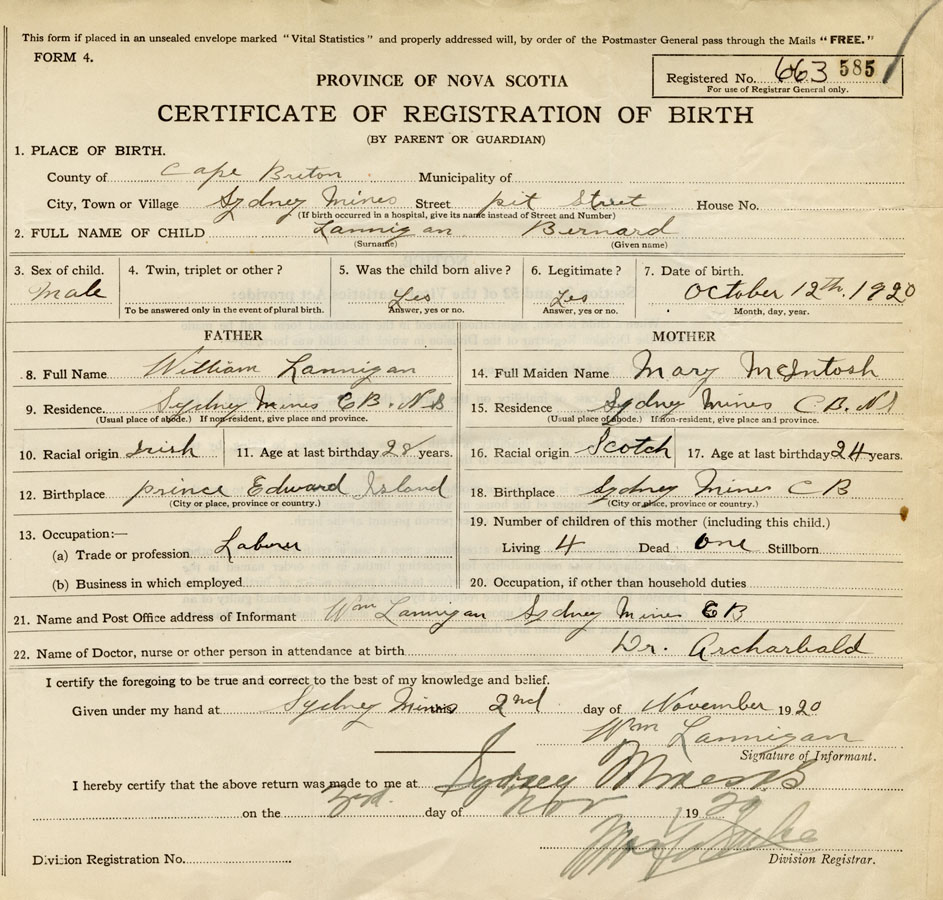 This form if placed in an unsealed envelope marked "Vital Statistics" and properly addressed will, by order of the Postmaster General pass through the Mails "FREE."
FORM 4.
Registered No. 663 585
For use of Registrar General only.
PROVINCE OF NOVA SCOTIA
CERTIFICATE OF REGISTRATION OF BIRTH
(BY PARENT OR GUARDIAN)
1. PLACE OF BIRTH.
County of Cape Breton Municipality of
City, Town or Village Sydney Mines Street pit Street House No.
(If birth occurred in a hospital, give its name instead of Street and Number)
2. FULL NAME OF CHILD Lannigan Bernard
(Surname) (Given name)
3. Sex of child. 4. Twin, triplet or other? 5. Was the child born alive? 6. Legitimate? 7. Date of birth.
Male Yes Yes October 12th. 1920
To be answered only in the event of plural birth. Answer, yes or no. Answer, yes or no. Month, day, year.
FATHER
8. Full Name William Lannigan
9. Residence. Sydney Mines CB. NS
(Usual place of abode.) If non-resident, give place and province.
10. Racial origin Irish 11. Age at last birthday 28 years.
12. Birthplace prince Edward Island
(City or place, province or country.)
13. Occupation:—
(a) Trade or profession Laborer
(b) Business in which employed
MOTHER
14. Full Maiden Name Mary McIntosh
15. Residence Sydney Mines CB. NS
(Usual place of abode.) If non-resident, give place and province.
16. Racial origin Scotch 17. Age at last birthday 24 years.
18. Birthplace Sydney Mines CB
(City or place, province or country.)
19. Number of children of this mother (including this child.)
Living 4 Dead One Stillborn
20. Occupation, if other than household duties
21. Name and Post Office address of Informant Wm Lannigan Sydney Mines CB
22. Name of Doctor, nurse or other person in attendance at birth Dr. Archarbald
I certify the foregoing to be true and correct to the best of my knowledge and belief.
Given under my hand at Sydney Mines 2nd day of November 1920
Wm Lannigan
Signature of Informant.
I hereby certify that the above return was made to me at Sydney Mines
on the 3rd. day of Nov 1920
Division Registration No. Division Registrar.